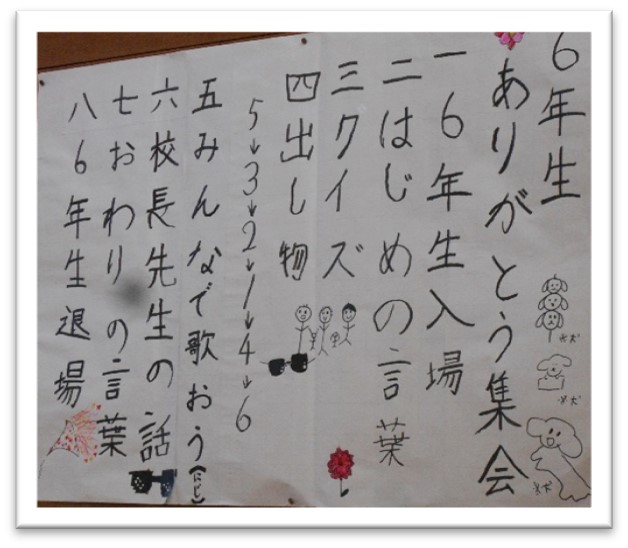 6年生
ありがとう集会
一6年生入場
二はじめの言葉
三クイズ
四出し物
5→3→2→1→4→6
五みんなで歌おう(にじ)
六校長先生の話
七おわりの言葉
八6年生退場